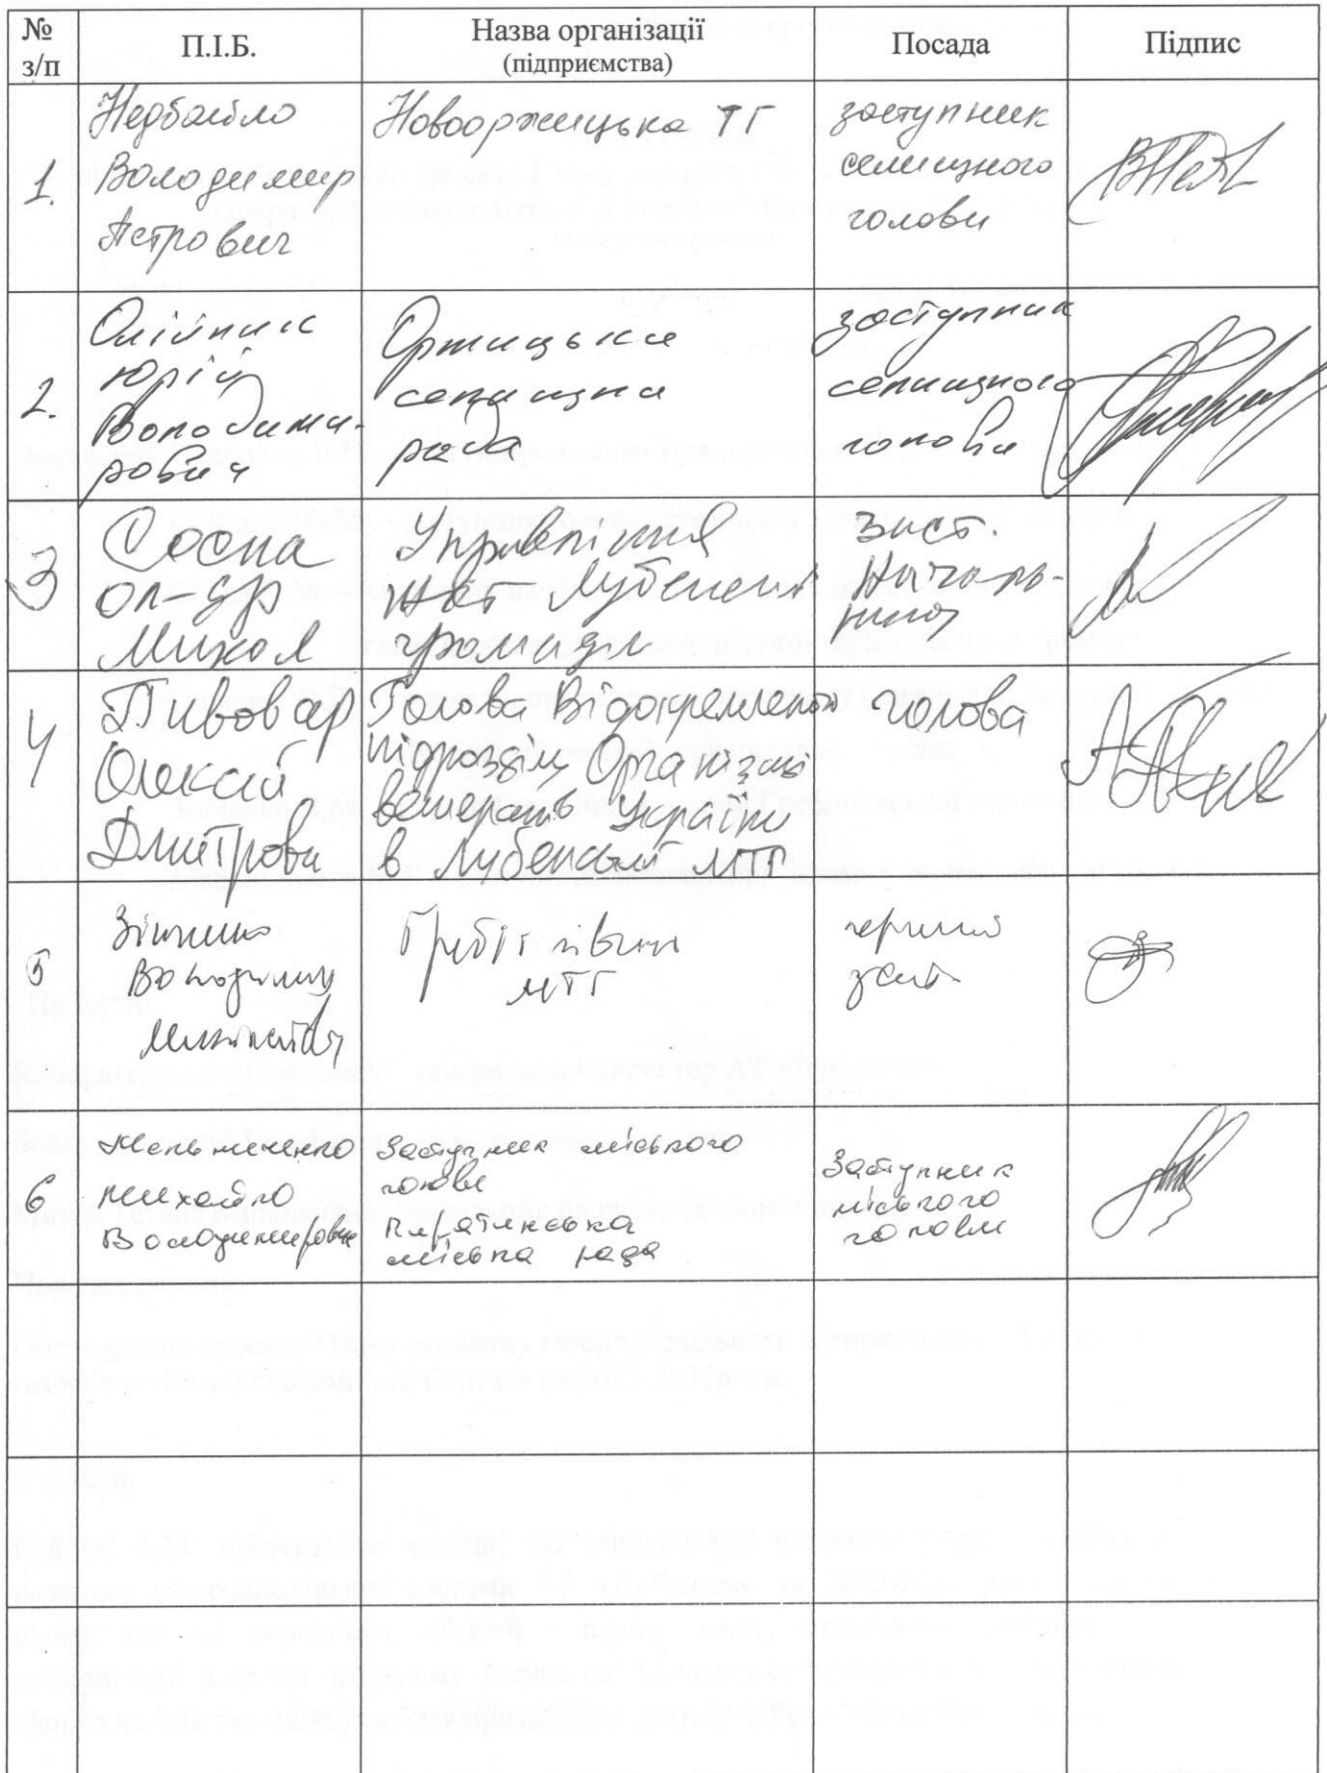 № з/п П.І.Б. Назва організації (підприємства) Посада Підпис
1. Недбайло Володимир Петрович Новооржицька ТГ заступник селищного голови
2. Олійник Юрій Володимирович Оржицька селищна рада заступник селищного голови
3 Сосна Ол-др Микол Управління ЖКГ Лубенської громади Заст. Начальника
4 Пивовар Олексій Дмитрови Голова Відокремленой підрозділу Організації ветеранів України в Лубенській МТГ голова
5 Володимир МТГ заст.
6 Михайло Володимирович Заступник міського голови Пирятинська міська рада Заступник міського голови